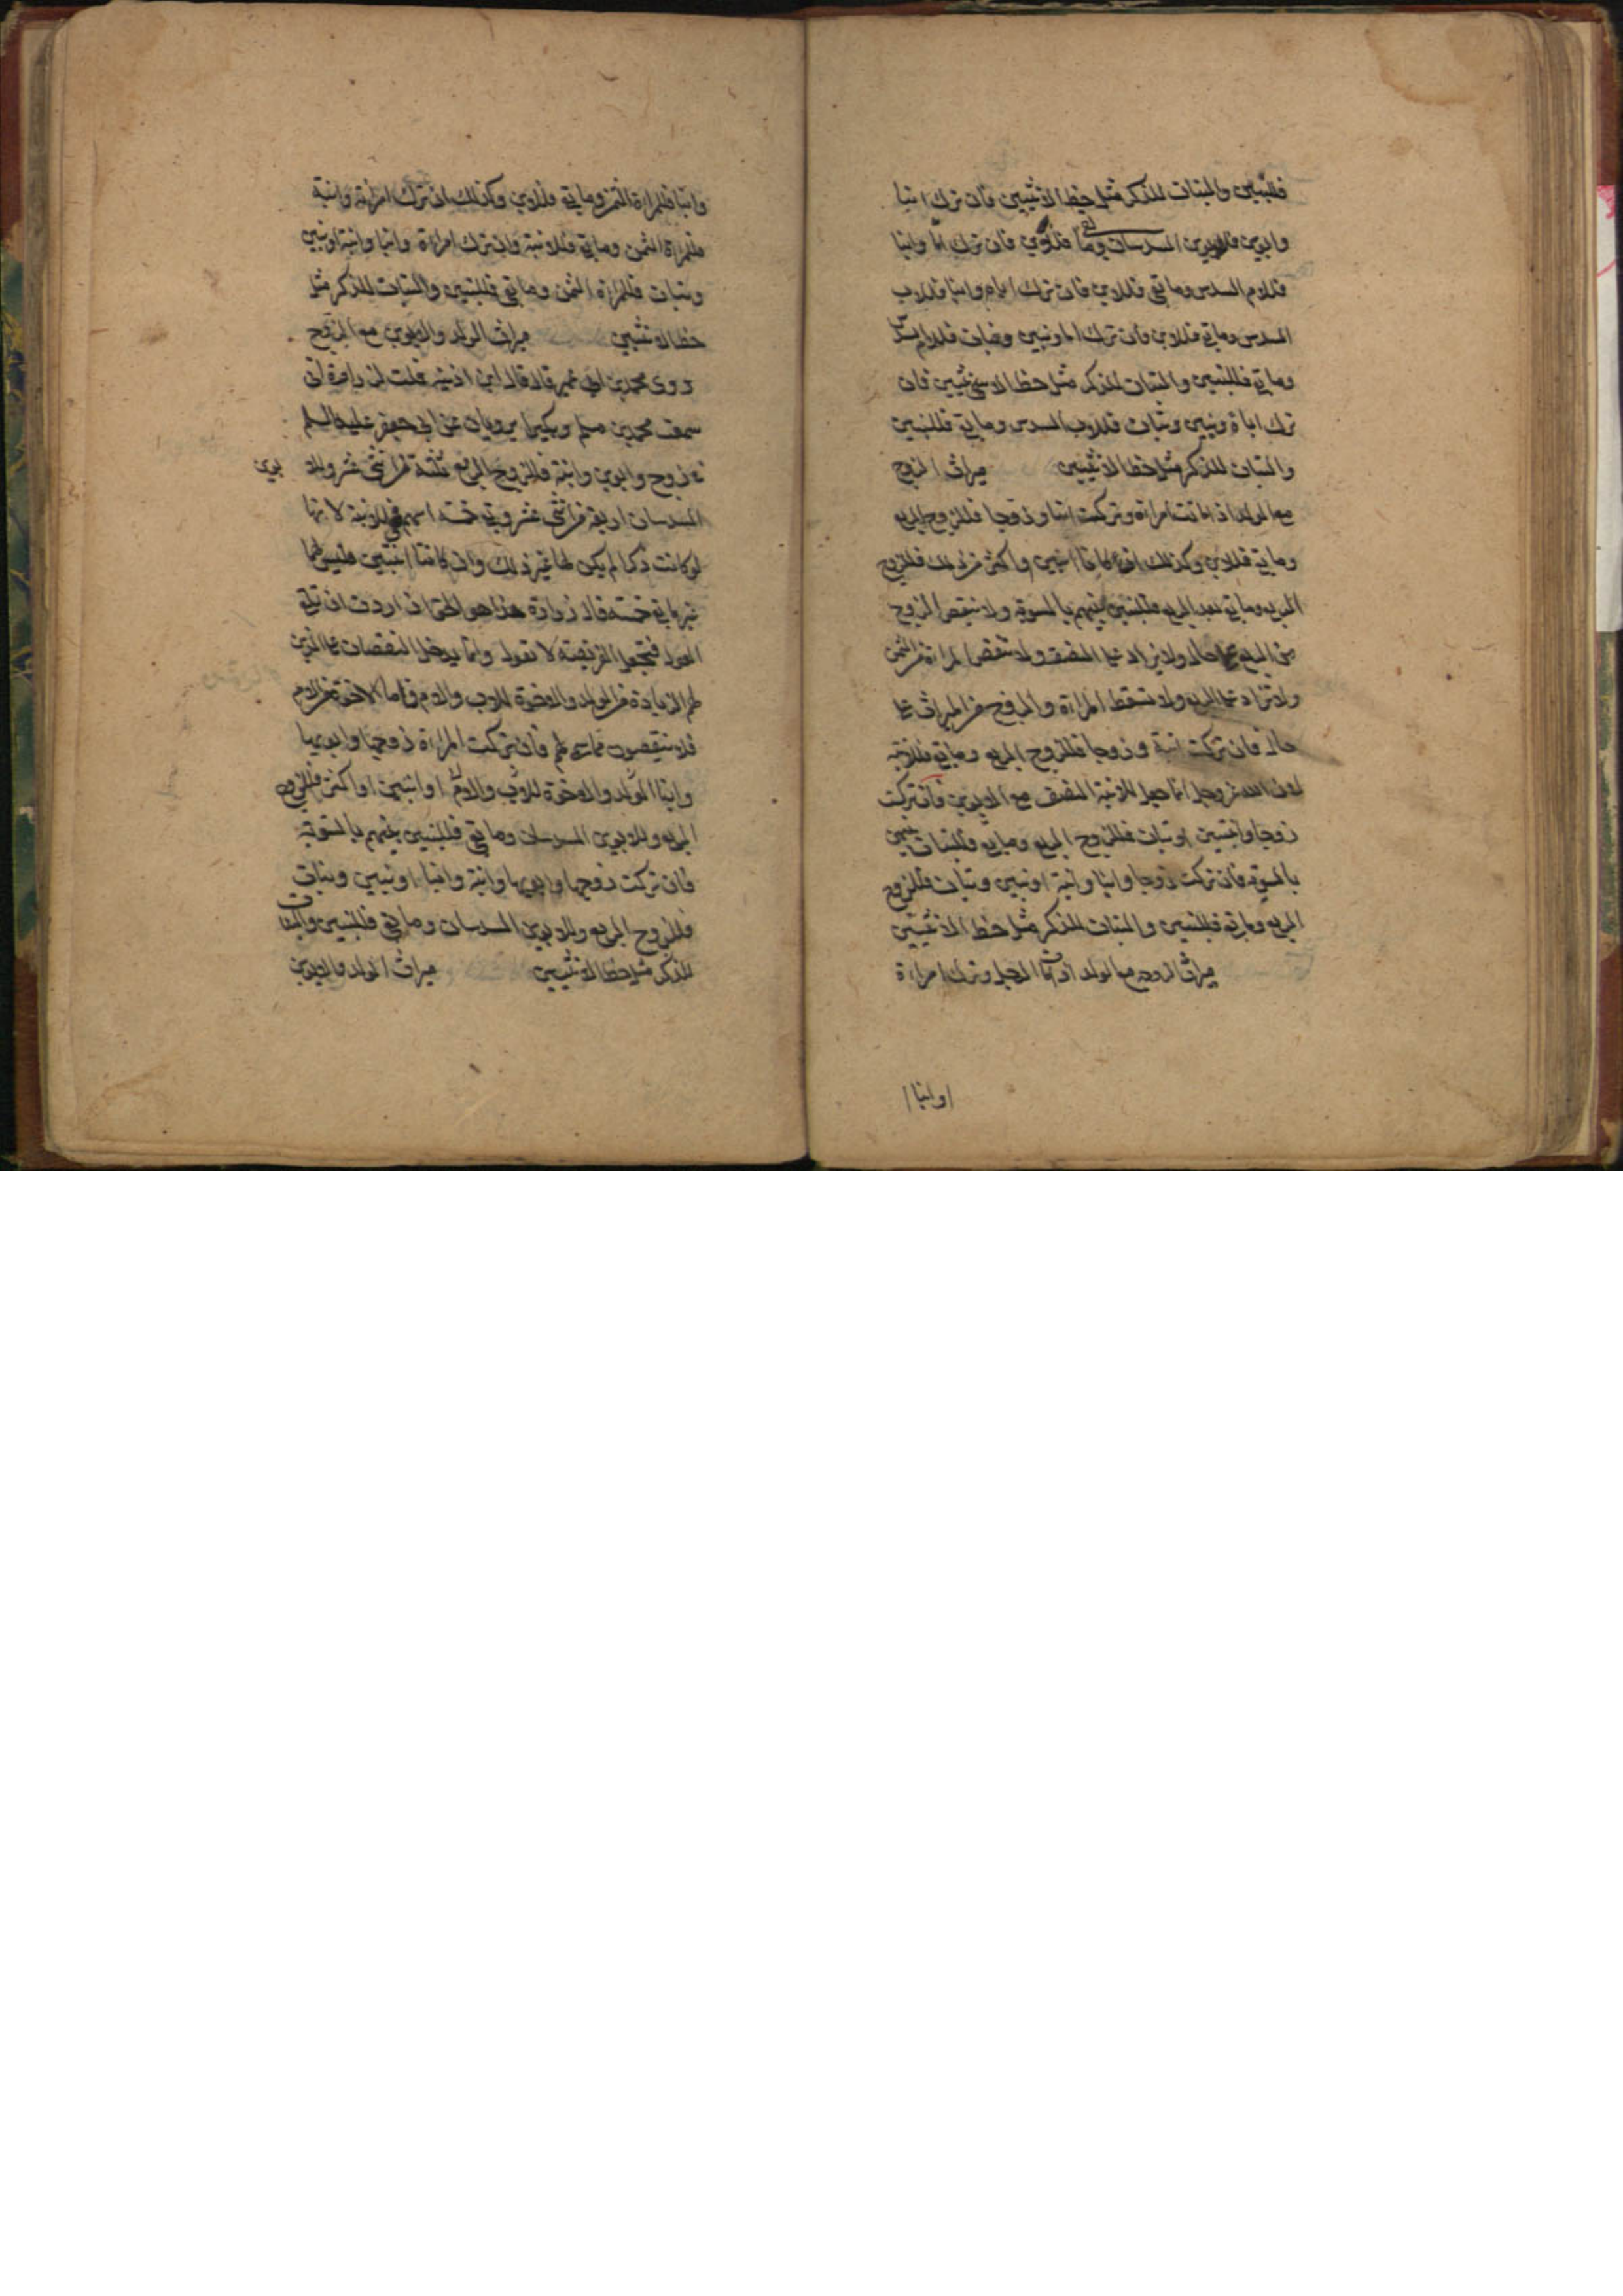 فللبنين والبنات للذكر مثل حظ الانثيين فان ترك ابنا
وابوين فللابوين السدسان وما بقى فللابن فان ترك اما وابنا
فللام السدس وما بقى فللابن فان ترك اباه وابنا فللاب
السدس وما بقى فللابن فان ترك اما وبنين وبنات فللام السدس
وما بقى فللبنين والبنات للذكر مثل حظ الانثيين فان
ترك اباه وبنين وبنات فللاب السدس وما بقى فللبنين
والبنات للذكر مثل حظ الانثيين ميراث الزوج
مع الولد اذا ماتت امراة وتركت ابنا وزوجا فللزوج الربع
وما بقى فللابن وكذلك ان كانا ابنين واكثر من ذلك فللزوج
الربع وما بقى بعد الربع فللبنين بينهم بالسوية ولا ينقص الزوج
من الربع على حال ولا يزاد على النصف ولا تنقص المراة من الثمن
ولا تزاد على الربع ولا تسقط المراة والزوج من الميراث على
حال فان تركت ابنة وزوجا فللزوج الربع وما بقى فللابنة
لان الله عز وجل انما جعل للابنة النصف مع الابوين فان تركت
زوجا وابنتين او بنات فللزوج الربع وما بقى فللبنات بينهن
بالسوية فان تركت زوجا وابنا وابنة او بنين وبنات فللزوج
الربع وما بقى فللبنين والبنات للذكر مثل حظ الانثيين
ميراث الزوجة مع الولد اذا مات الرجل وترك امراة
وابنا
وابنا فللمراة الثمن وما بقى فللابن وكذلك ان ترك امراة وابنة
فللمراة الثمن وما بقى فللابنة فان ترك امراة وابنا وابنة او بنين
وبنات فللمراة الثمن وما بقى فللبنين والبنات للذكر مثل
حظ الانثيين ميراث الولد والابوين مع الزوج
روى محمد بن ابى عمير قال قال ابن اذينة قلت لزرارة انى
سمعت محمد بن مسلم وبكيرا يرويان عن ابى جعفر عليه السلم
فى زوج وابوين وابنة فللزوج الربع ثلثة من اثنى عشر وللا بوين
السدسان اربعة من اثنى عشر وبقى خمسة اسهم فهى للابنة لانها
لو كانت ذكرا لم يكن لها غير ذلك وان كانتا ابنتين فليس لهما
غير ما بقى خمسة قال زرارة هذا هو الحق ان اردت ان تلقى
العول فتجعل الفريضة لا تعول وانما يدخل النقصان على الذين
لهم الزيادة من الولد والاخوة للاب والام فاما الاخوة من الام
فلا ينقصون مما سمى لهم فان تركت المراة زوجها وابويها
وابنا الولد والاخوة للاب والام او ابنين او اكثر فللزوج
الربع وللابوين السدسان وما بقى فللبنين بينهم بالسوية
فان تركت زوجها وابويها وابنة وابنا او بنين وبنات
فللزوج الربع وللابوين السدسان وما بقى فللبنين والبنات
للذكر مثل حظ الانثيين ميراث الولد والابوين